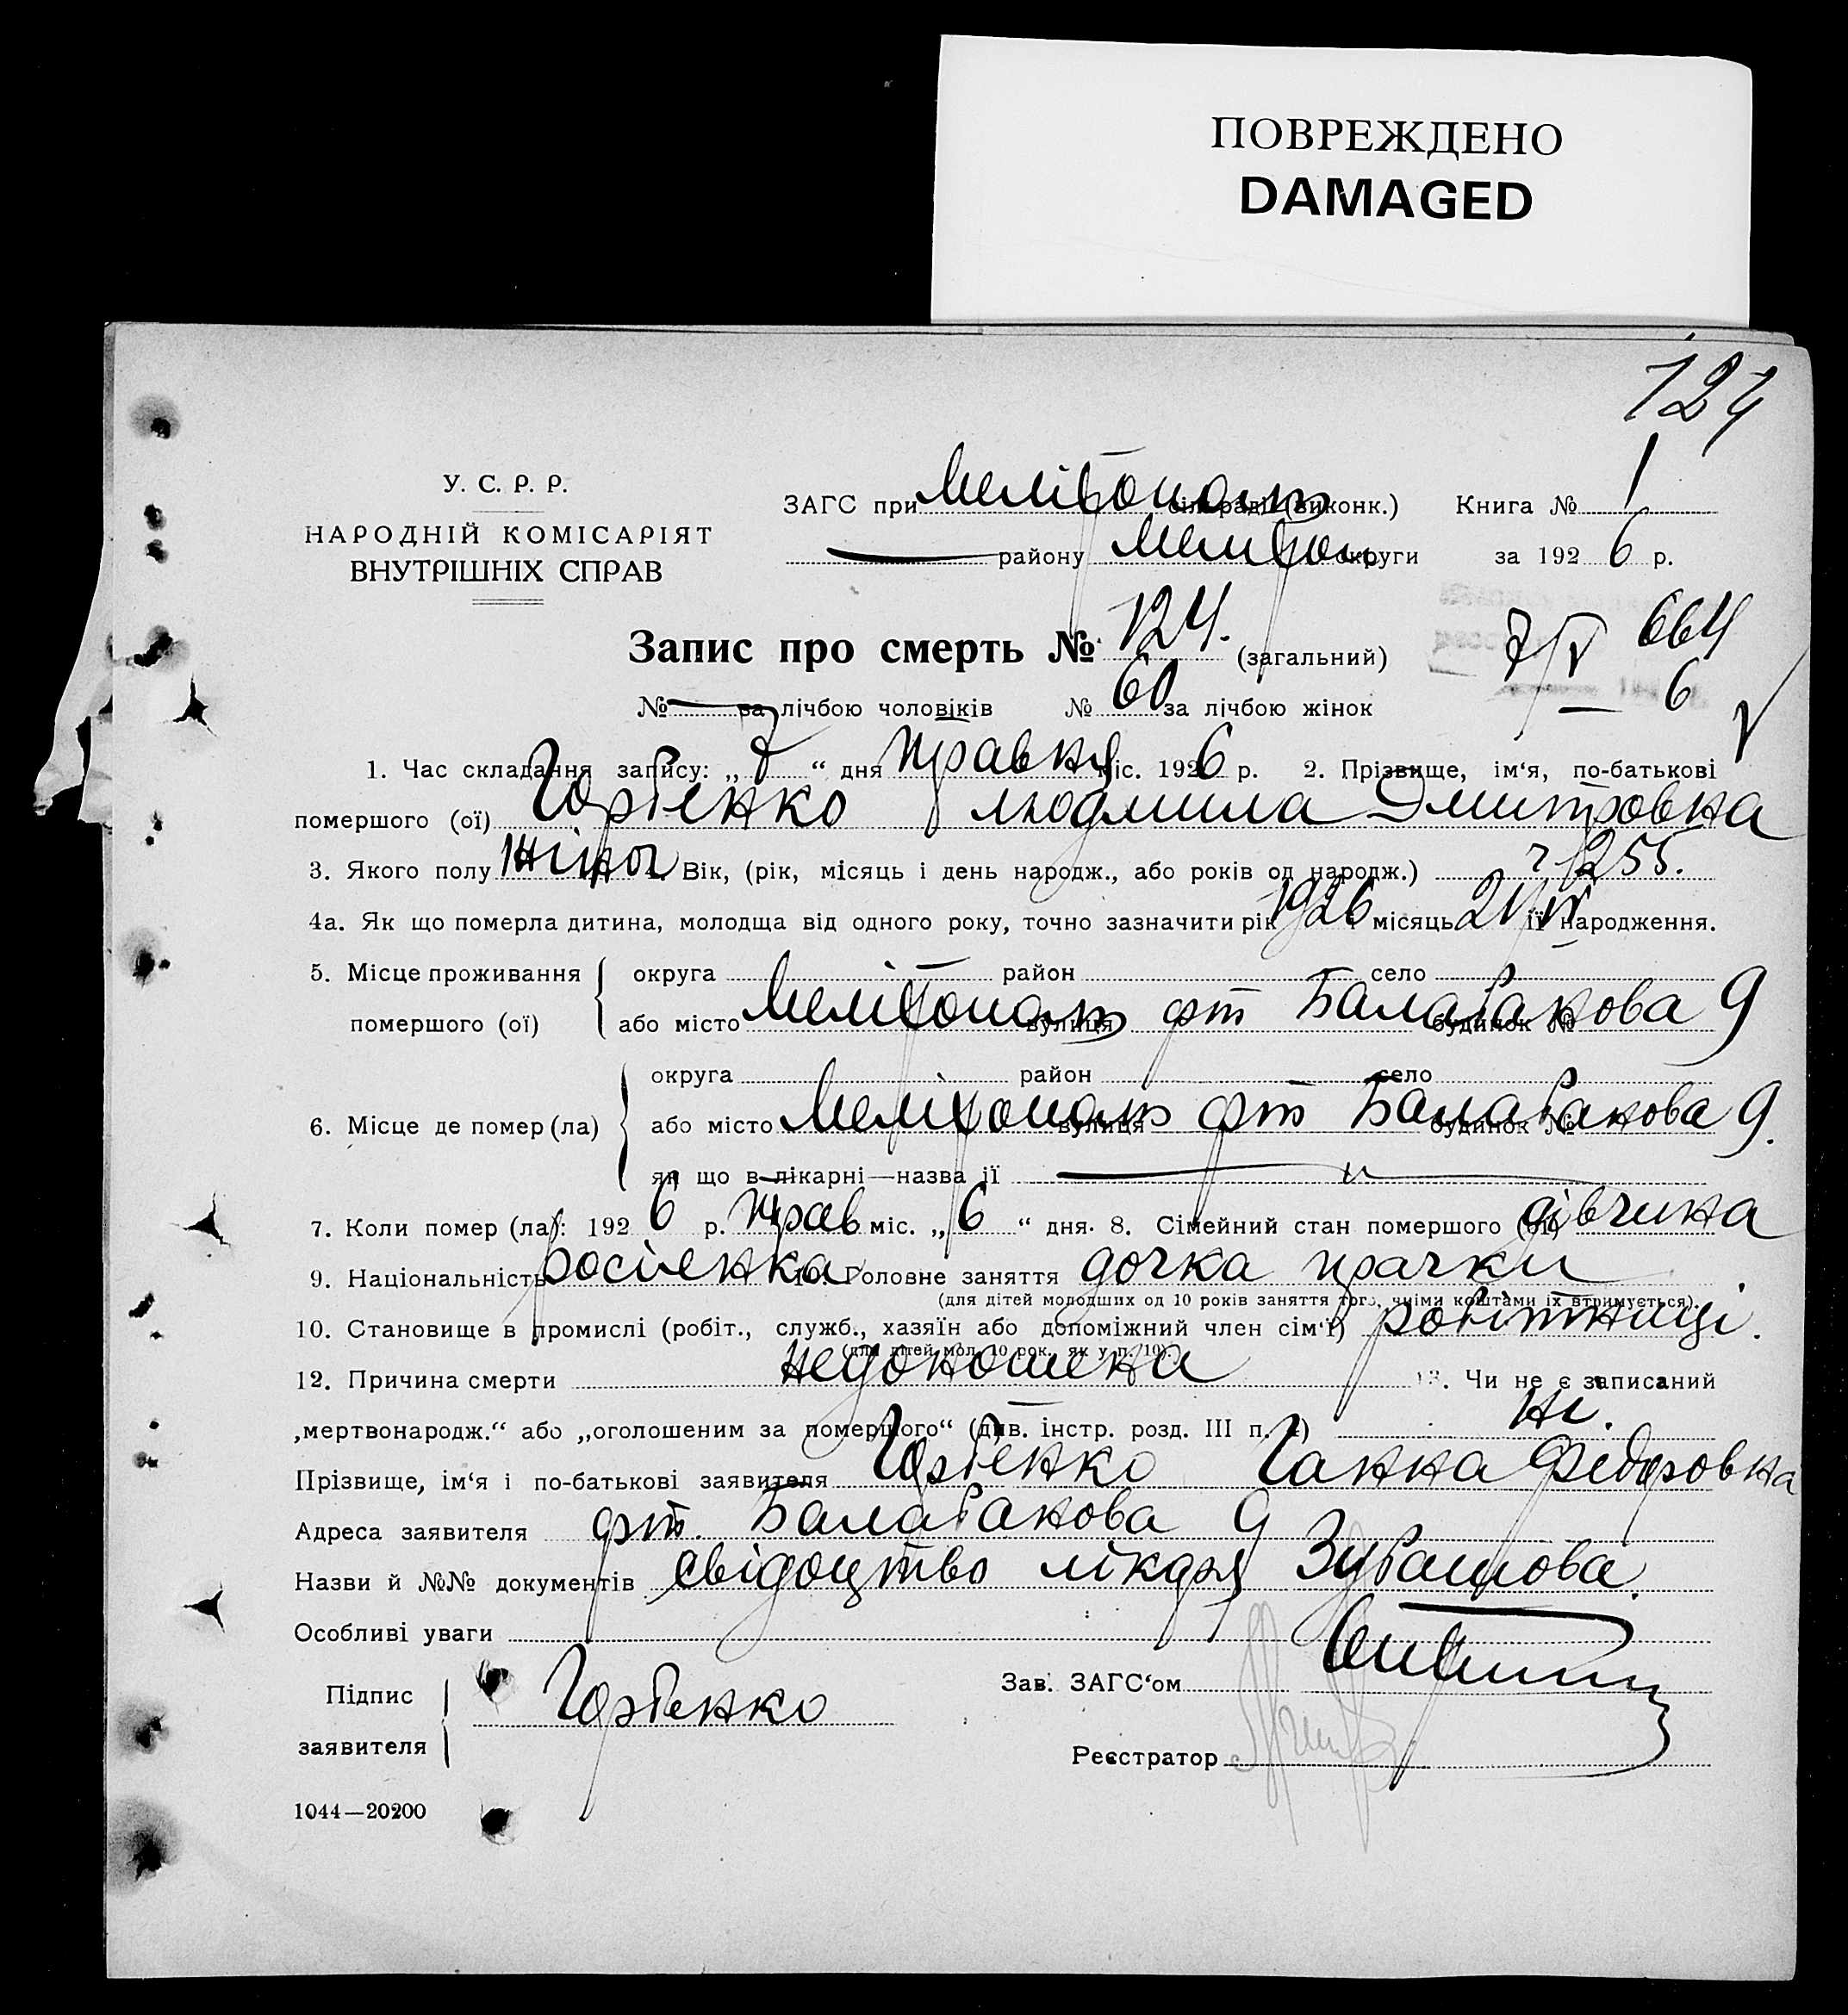 ПОВРЕЖДЕНО
DAMAGED
124
У. С. Р. Р.
НАРОДНІЙ КОМІСАРІЯТ
ВНУТРІШНІХ СПРАВ
ЗАГС при Мелітопольск сільраді (виконк.) Книга № 1
району Меліtоп округи за 1926 р.
Запис про смерть № 124. (загальний) 7/V 664
№ за лічбою чоловіків № 60 за лічбою жінок 6
1. Час складання запису: „ 7 “ дня травня міс. 1926 р. 2. Прізвище, ім‘я, по-батькові
помершого (ої) Горбенко Людмила Дмитровна
3. Якого полу жіноч 4. Вік, (рік, місяць і день народж., або років од народж.) 1255.
4а. Як що померла дитина, молодща від одного року, точно зазначити рік 1926 місяць 21/IV її народження.
5. Місце проживання округа район село
помершого (ої) або місто Меліtополь вулиця фт Балабанова будинок № 9
округа район село
6. Місце де помер (ла) або місто Меліtополь вулиця фт Балабанова будинок № 9.
як що в лікарні—назва ії
7. Коли помер (ла): 1926 р. трав міс. „ 6 “ дня. 8. Сімейний стан помершого (ої) дівчина
9. Національність росіенка 10. Головне заняття дочка прачки
(для дітей молодших од 10 років заняття того, чиїми коштами їх втримується).
10. Становище в промислі (робіт., служб., хазяїн або допоміжний член сім‘ї) робітниці.
(для дітей мол. 10 рок. як у п. 10).
12. Причина смерти недоношена 13. Чи не є записаний
„мертвонародж.“ або „оголошеним за помершого“ (див. інстр. розд. III п. 4) ні.
Прізвище, ім‘я і по-батькові заявителя Горбенко Ганна Федоровна
Адреса заявителя фт. Балабанова 9
Назви й №№ документів свідоцтво лікаря Зубашова.
Особливі уваги
Підпис
заявителя Горбенко
Зав. ЗАГС‘ом
Реєстратор
1044—20200